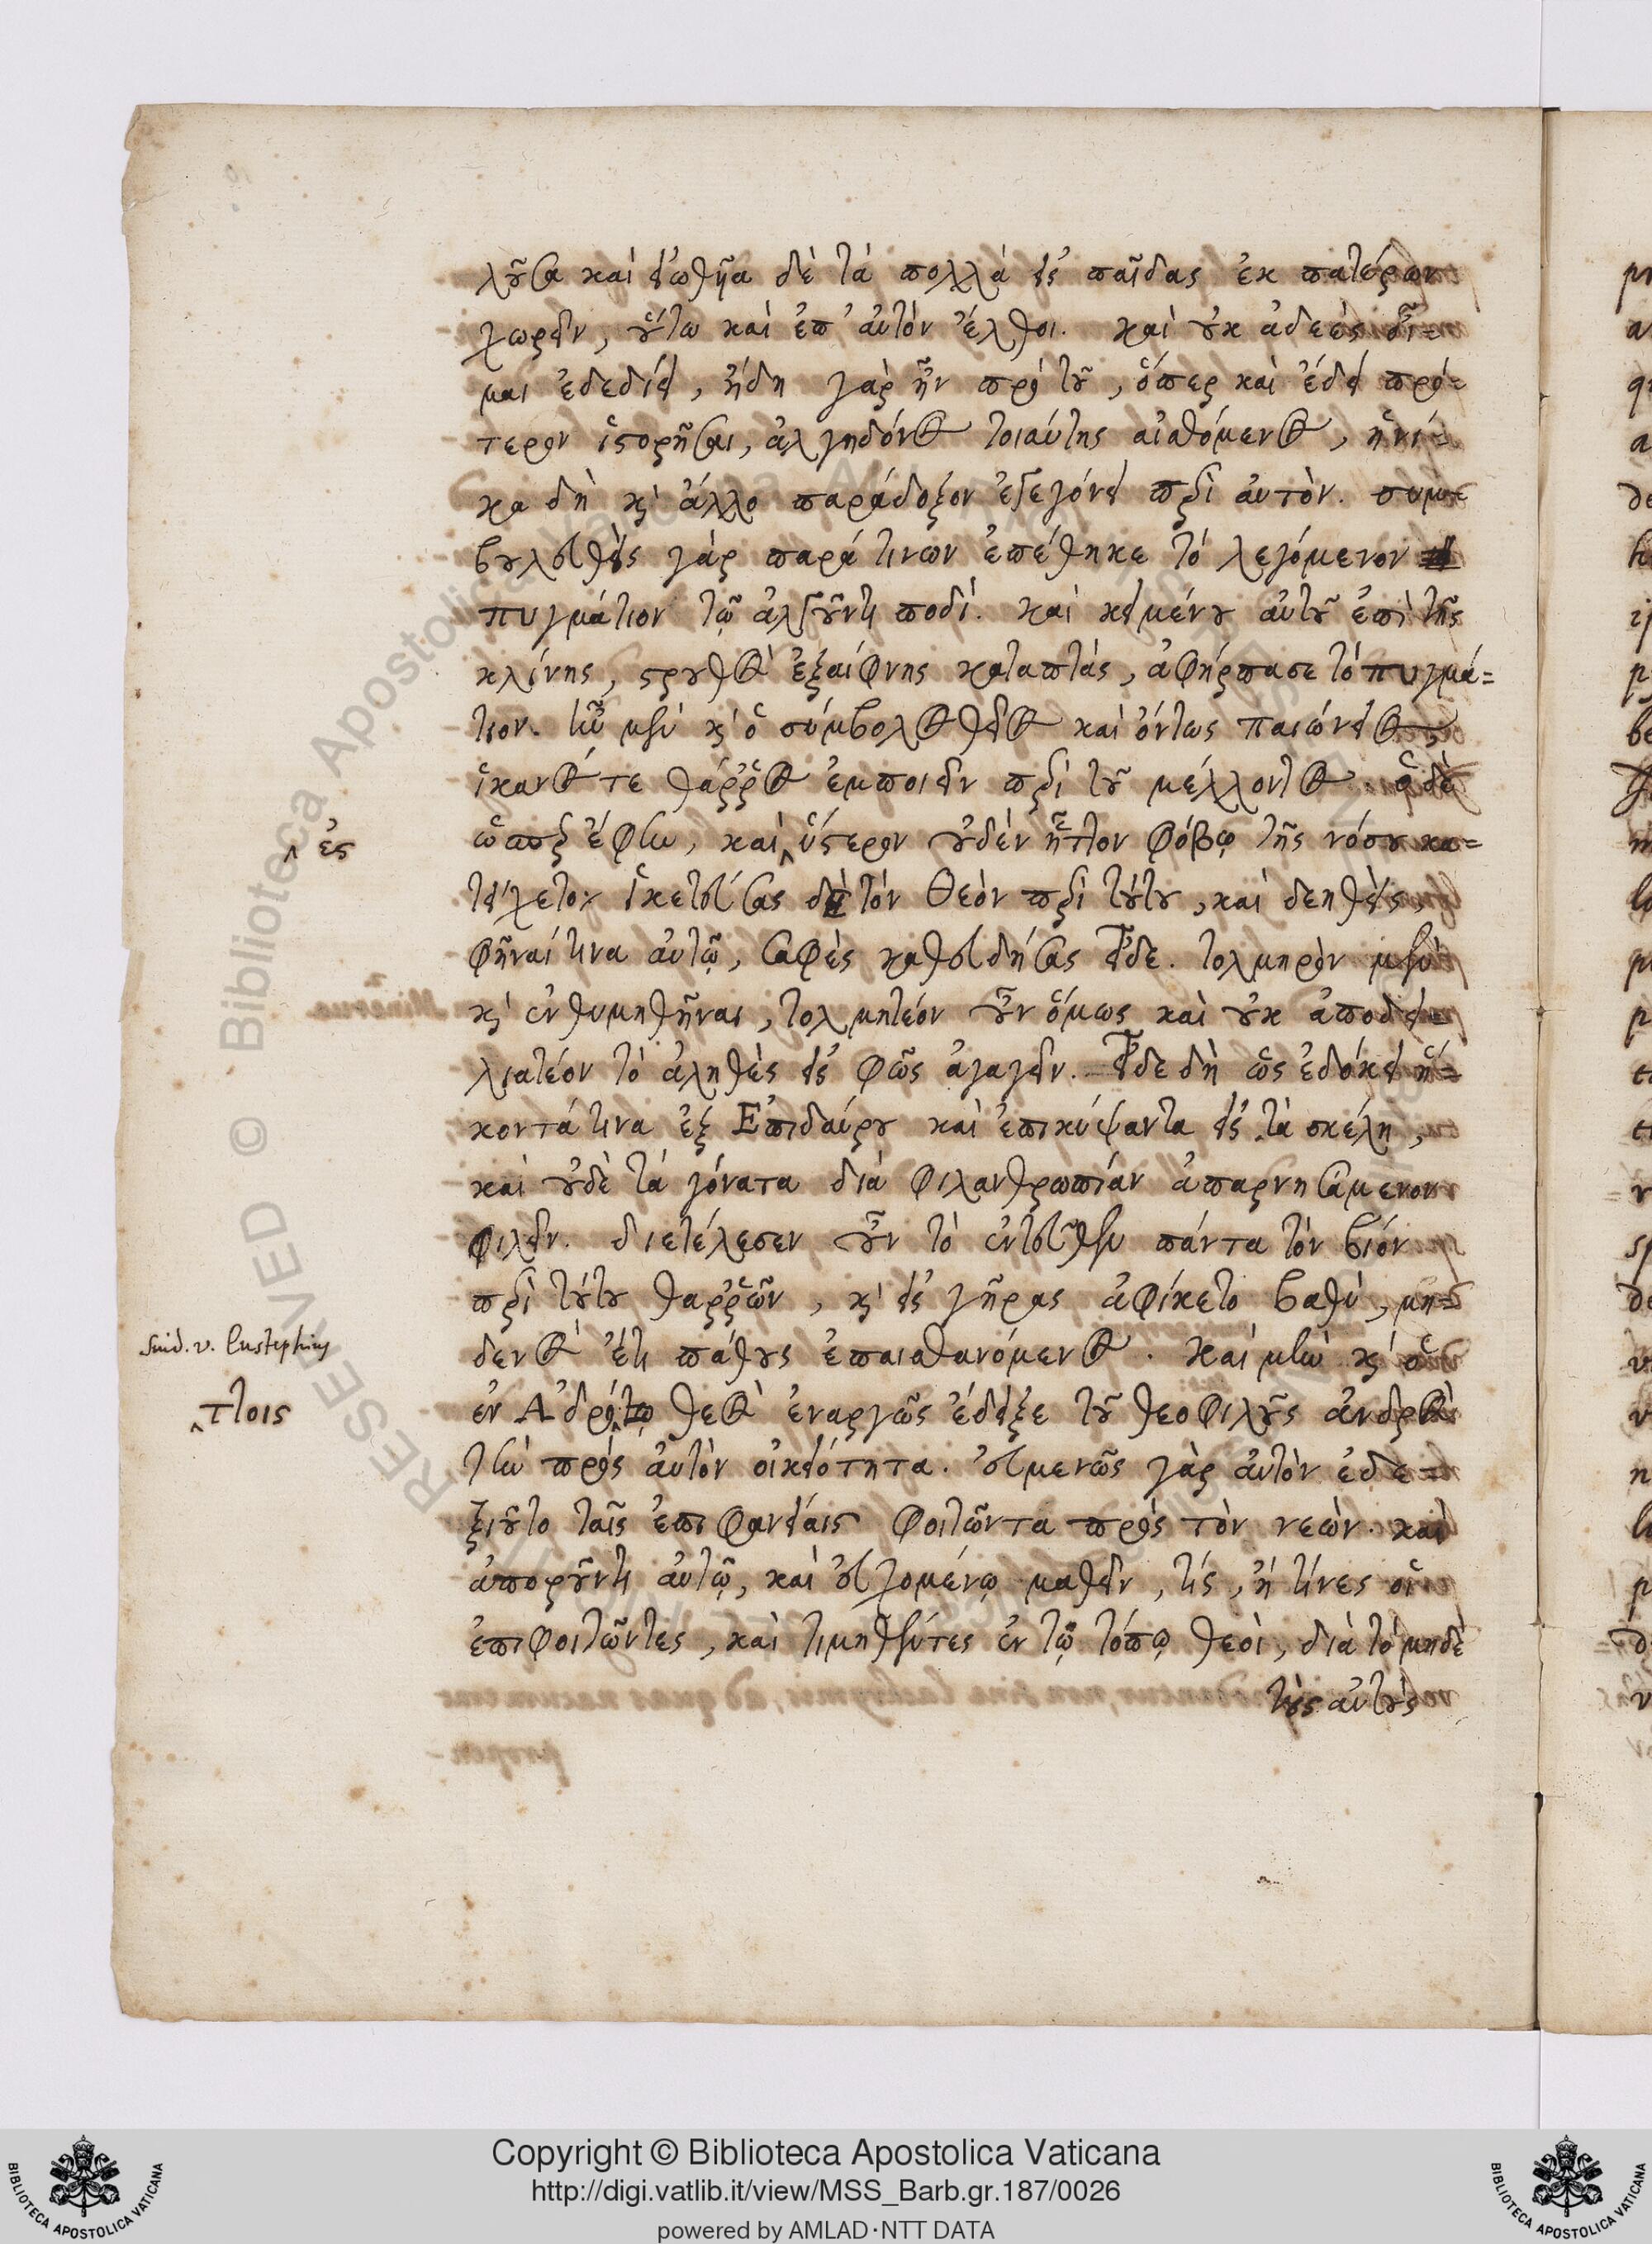 λοῦσα καὶ εἰωθῆα δὲ τὰ πολλὰ εἰς παῖδας ἐκ πατέρων
χωρεῖν, οὕτω καὶ ἐπ' αὐτὸν ἔλθοι. καὶ οὐκ ἀδεὲς οἶ=
μαι ἐδεδίει, ἤδη γὰρ ἦν πρὸ τοῦ, ὅπερ καὶ ἔδει πρό=
τερον ἱστορῆσαι, ἀλγηδόνος τοιαύτης αἰσθόμενος, ἡνί=
κα δὴ κ' ἄλλο παράδοξον ἐγεγόνει περὶ αὐτὸν. συμ=
βουλευθεὶς γὰρ παρά τινων ἐπέθηκε τὸ λεγόμενον
πυγμάτιον τῷ ἀλγοῦντι ποδί. καὶ κειμένου αὐτοῦ ἐπὶ τῆς
κλίνης, στρουθὸς ἐξαίφνης καταπτὰς, ἀφήρπασε τὸ πυγμά=
τιον. ἦν μὲν κ' ὁ σύμβολος θεῖος καὶ ὄντως παιώνειος
ἱκανός τε θάρρος ἐμποιεῖν περὶ τοῦ μέλλοντος. ὁ δὲ
ὥσπερ ἔφην, καὶ ὕστερον οὐδὲν ἧττον φόβῳ τῆς νόσου κα=
^ ἐς
τείχετο. ἱκετεύσας δὴ τὸν Θεὸν περὶ τούτου, καὶ δεηθεὶς,
φῆναί τινα αὐτῷ, σαφὲς καθευδήσας εἶδε. τολμηρὸν μὲν
κ' ἐνθυμηθῆναι, τολμητέον οὖν ὅμως καὶ οὐκ ἀποδει=
λιατέον τὸ ἀληθὲς εἰς φῶς ἀγαγεῖν. εἶδε δὴ ὡς ἐδόκει ἥ=
κοντά τινα ἐξ Ἐπιδαύρου καὶ ἐπικύψαντα εἰς τὰ σκέλη,
καὶ οὐδὲ τὰ γόνατα διὰ φιλανθρωπίαν ἀπαρνησάμενον
φιλεῖν. διετέλεσεν οὖν τὸ ἐντεῦθεν πάντα τὸν βίον
περὶ τούτου θαρρῶν, κ' εἰς γῆρας ἀφίκετο βαθὺ, μη=
δενὸς ἔτι πάθους ἐπαισθανόμενος. καὶ μὴν κ' ὁ
Suid. v. Eustephius
ἐν Ἀδρότῳ θεὸς ἐναργῶς ἔδειξε τοῦ θεοφιλοῦς ἀνδρὸς
^ττοις
τὴν πρὸς αὐτὸν οἰκειότητα. εὐμενῶς γὰρ αὐτὸν ἐδε=
ξιοῦτο ταῖς ἐπιφανείαις φοιτῶντα πρὸς τὸν νεών. καὶ
ἀποροῦντι αὐτῷ, καὶ εὐχομένῳ μαθεῖν, τίς, ἢ τίνες οἱ
ἐπιφοιτῶντες, καὶ τιμηθέντες ἐν τῷ τόπῳ θεοὶ, διὰ τὸ μηδὲ
τοὺς αὐτοὺς
Copyright © Biblioteca Apostolica Vaticana
http://digi.vatlib.it/view/MSS_Barb.gr.187/0026
powered by AMLAD·NTT DATA